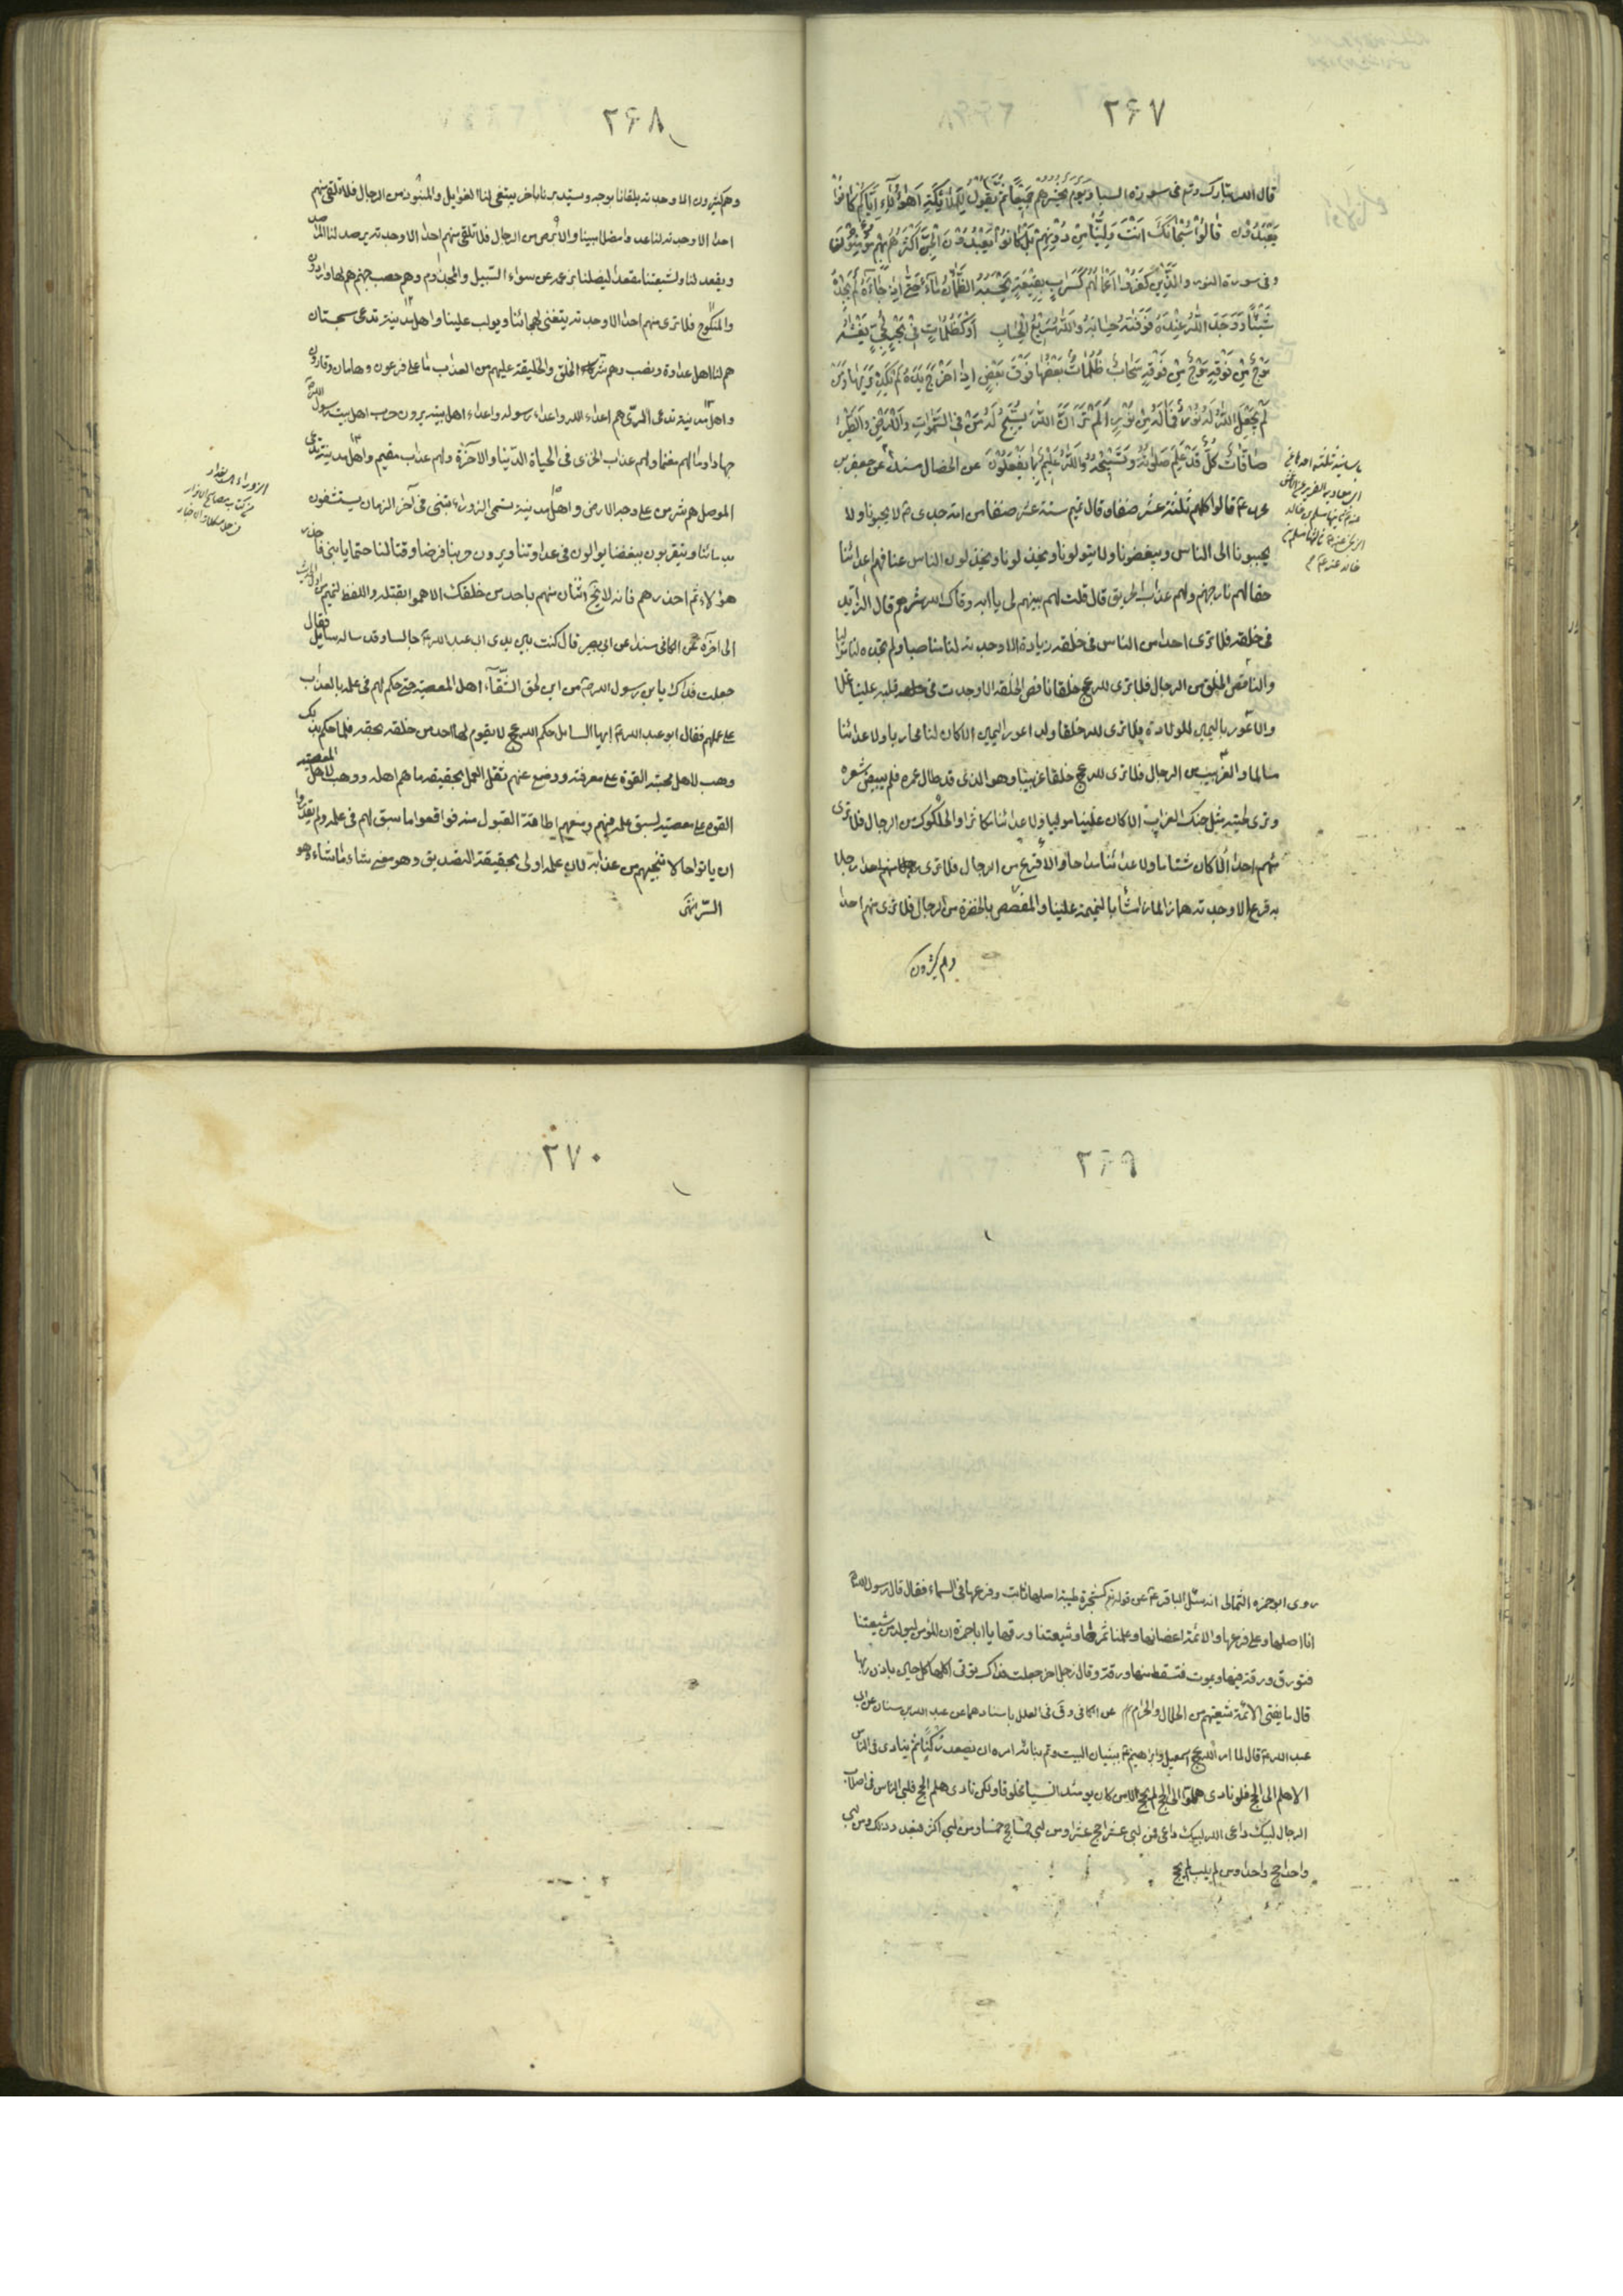 ٢۶٧
قال الله تبارك وتع فى سورة السبا ويوم يحشرهم جميعا ثم يقول للملائكة اهؤلاء اياكم كانوا
يعبدون قالوا سبحانك انت ولينا من دونهم بل كانوا يعبدون الجن اكثرهم بهم مؤمنون
وفى سورة النور والذين كفروا اعمالهم كسراب بقيعة يحسبه الظمآن ماء حتى اذا جاءه لم يجده
شيئا ووجد الله عنده فوفيه حسابه والله سريع الحساب او كظلمات فى بحر لجى يغشيه
موج من فوقه موج من فوقه سحاب ظلمات بعضها فوق بعض اذا اخرج يده لم يكد يريها ومن
لم يجعل الله له نورا فما له من نور الم تر ان الله يسبح له من فى السموات والارض والطير
صافات كل قد علم صلوته وتسبيحه والله عليم بما يفعلون عن الخصال مسندا عن جعفر بن
قالوا كلهم ثلثة عشر صنفا وقال تميم ستة عشر صنفا من امة جدى ص لا يحبونا ولا
يحببونا الى الناس ويبغضونا ولا يتولونا ويخذلونا ويخذلون الناس عنا فهم اعدائنا
حقا لهم نار جهنم ولهم عذاب الحريق قال قلت بينهم لى يا ابه وقاك الله شرهم قال الزايد
فى خلقه فلا ترى احدا من الناس فى خلقه زيادة الا وجدته لنا مناصبا ولم تجده لنا مواليا
والناقص الخلق من الرجال فلا ترى لله عج خلقا ناقص الخلقة الا وجدت فى قلبه علينا غلا
والاعور باليمين للولادة فلا ترى لله خلقا ولد اعور اليمين الا كان لنا محاربا ولاعدائنا
مسالما والغربيب من الرجال فلا ترى لله عج خلقا غربيبا وهو الذى قد طال عمره فلم يبيض شعره
وترى لحيته مثل حنك الغراب الا كان علينا مولبا ولاعدائنا مكاثرا والحلكوك من الرجال فلا ترى
منهم احدا الا كان شتاما ولاعدائنا مداحا والاقرع من الرجال فلا ترى رجلا
به قرع الا وجدته همازا لمازا مشاء بالنميمة علينا والمفصص بالخضرة من الرجال فلا ترى منهم احدا
وهم كثيرون
٢۶٨
وهم كثيرون الا وجدته يلقانا بوجه ويستدبرنا باخر يبتغى لنا الغوايل والمنبوذ من الرجال فلا تلقى منهم
احدا الا وجدته لنا عدوا مضلا مبينا والابرص من الرجال فلا تلقى منهم احدا الا وجدته يرصد لنا المراصد
ويقعد لنا ولشيعتنا مقعدا ليضلنا بزعمه عن سواء السبيل والمجذوم وهم حصب جهنم هم لها واردون
والمنكوح فلا ترى منهم احدا الا وجدته يتغنى بهجائنا ويولب علينا واهل مدينة تدعى سجستان
هم لنا اهل عداوة ونصب وهم شر الخلق والخليقة عليهم من العذاب ما على فرعون وهامان وقارون
واهل مدينة تدعى الرى هم اعداء الله واعداء رسوله واعداء اهل بيته يرون حرب اهل بيت رسول الله
جهادا ومالهم مغنما ولهم عذاب الخزى فى الحياة الدنيا والآخرة ولهم عذاب مقيم واهل مدينة تدعى
الموصل هم شر من على وجه الارض واهل مدينة تسمى الزوراء تبنى فى آخر الزمان يستشفون
بدمائنا ويتقربون ببغضنا يوالون فى عداوتنا ويرون حربنا فرضا وقتالنا حتما يا بنى فاحذر
هؤلاء ثم احذرهم فانه لا يخلو اثنان منهم باحد من خلقك الا هموا بقتله واللفظ لتميم من اول الحديث
الى آخره عن الكافى مسندا عن ابى بصير قال كنت بين يدى ابى عبد الله ع جالسا وقد ساله سايل فقال
جعلت فداك يا بن رسول الله ص من اين لحق الشقاء اهل المعصية حتى حكم لهم فى علمه بالعذاب
على عملهم فقال ابو عبد الله ع ايها السائل حكم الله عج لا يقوم له احد من خلقه بحقه فلما حكم بذلك
وهب لاهل محبته القوة على معرفته ووضع عنهم ثقل العمل بحقيقة ما هم اهله ووهب لاهل المعصية
القوة على معصيته لسبق علمه فيهم ومنعهم اطاقة القبول منه فواقعوا ما سبق لهم فى علمه ولم يقدروا
ان ياتوا حالا تنجيهم من عذابه لان علمه اولى بحقيقة التصديق وهو معنى شاء ما شاء وهو
السر
الزوراء بغداد
٢۶٩
روى ابو حمزه الثمالى انه سئل الباقر ع عن قوله تع كشجرة طيبة اصلها ثابت وفرعها فى السماء فقال قال رسول الله
انا اصلها وعلى فرعها والائمة اغصانها وعلمنا ثمرها وشيعتنا ورقها يا ابا حمزة ان المؤمن ليولد من شيعتنا
فتورق ورقة فيها ويموت فتسقط منها ورقة وقال رجل اخر جعلت فداك تؤتى اكلها كل حين باذن ربها
قال ما يفتى الائمة شيعتهم من الحلال والحرام عن الكافى وفى العلل باسنادهما عن عبد الله بن سنان عن ابى
عبد الله ع قال لما امر الله عج اسمعيل وابراهيم ع ببنيان البيت وتم بنائه امره ان يصعد ركنا ثم ينادى فى الناس
الا هلم الى الحج فلو نادى هلموا الى الحج لم يحج الا من كان يومئذ انسيا مخلوقا ولكن نادى هلم الحج فلبى الناس فى اصلاب
الرجال لبيك داعى الله لبيك داعى فمن لبى عشرا حج عشرا ومن لبى خمسا حج خمسا ومن لبى اكثر فبعدد ذلك ومن لبى
واحدا حج واحدا ومن لم يلب لم يحج
٢٧٠